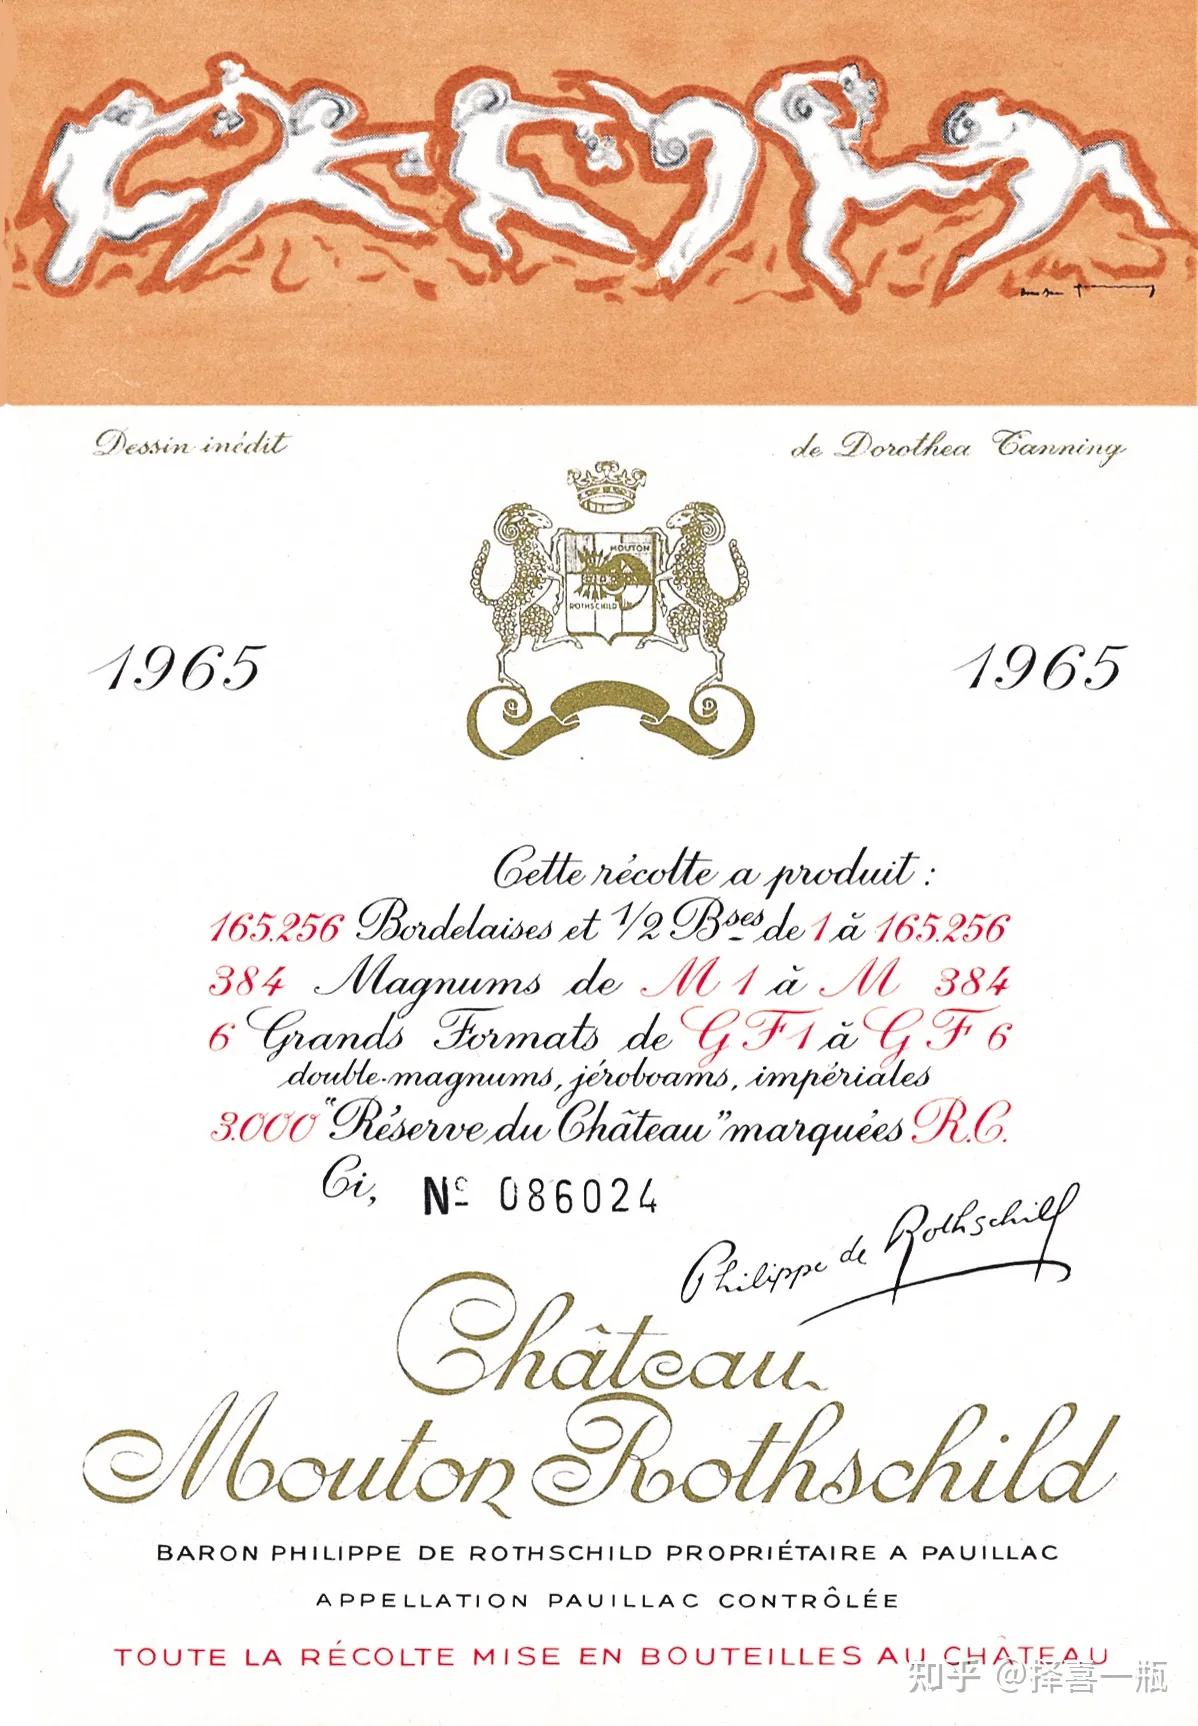 Dessin inédit de Dorothea Tanning
MOUTON
ROTHSCHILD
1965 1965
Cette récolte a produit :
165.256 Bordelaises et 1/2 Bses de 1 à 165.256
384 Magnums de M 1 à M 384
6 Grands Formats de GF1 à GF 6
double-magnums, jéroboams, impériales
3.000 "Réserve du Château" marquées R.C.
Ci, Nº 086024
Philippe de Rothschild
Château
Mouton Rothschild
BARON PHILIPPE DE ROTHSCHILD PROPRIÉTAIRE A PAUILLAC
APPELLATION PAUILLAC CONTRÔLÉE
TOUTE LA RÉCOLTE MISE EN BOUTEILLES AU CHÂTEAU
知乎 @择喜一瓶